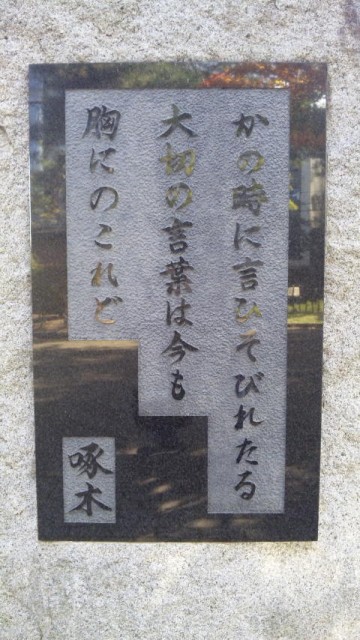 かの時に言ひそびれたる
大切の言葉は今も
胸にのこれど
啄木